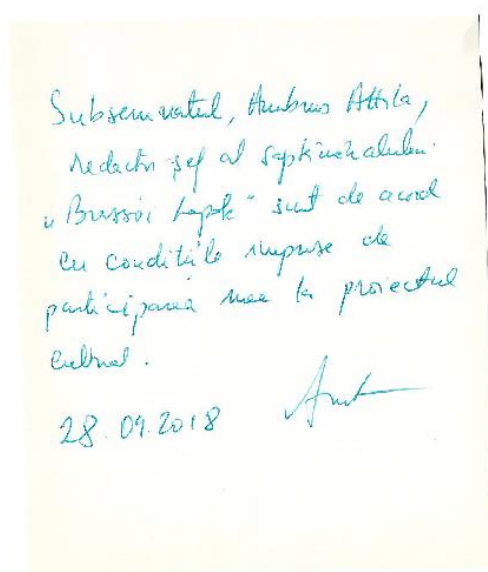 Subsemnatul, Ambrus Attila,
redactor şef al săptămânalului
„Brassói Lapok" sunt de acord
cu condiţiile impuse de
participarea mea la proiectul
cultural.
28.09.2018